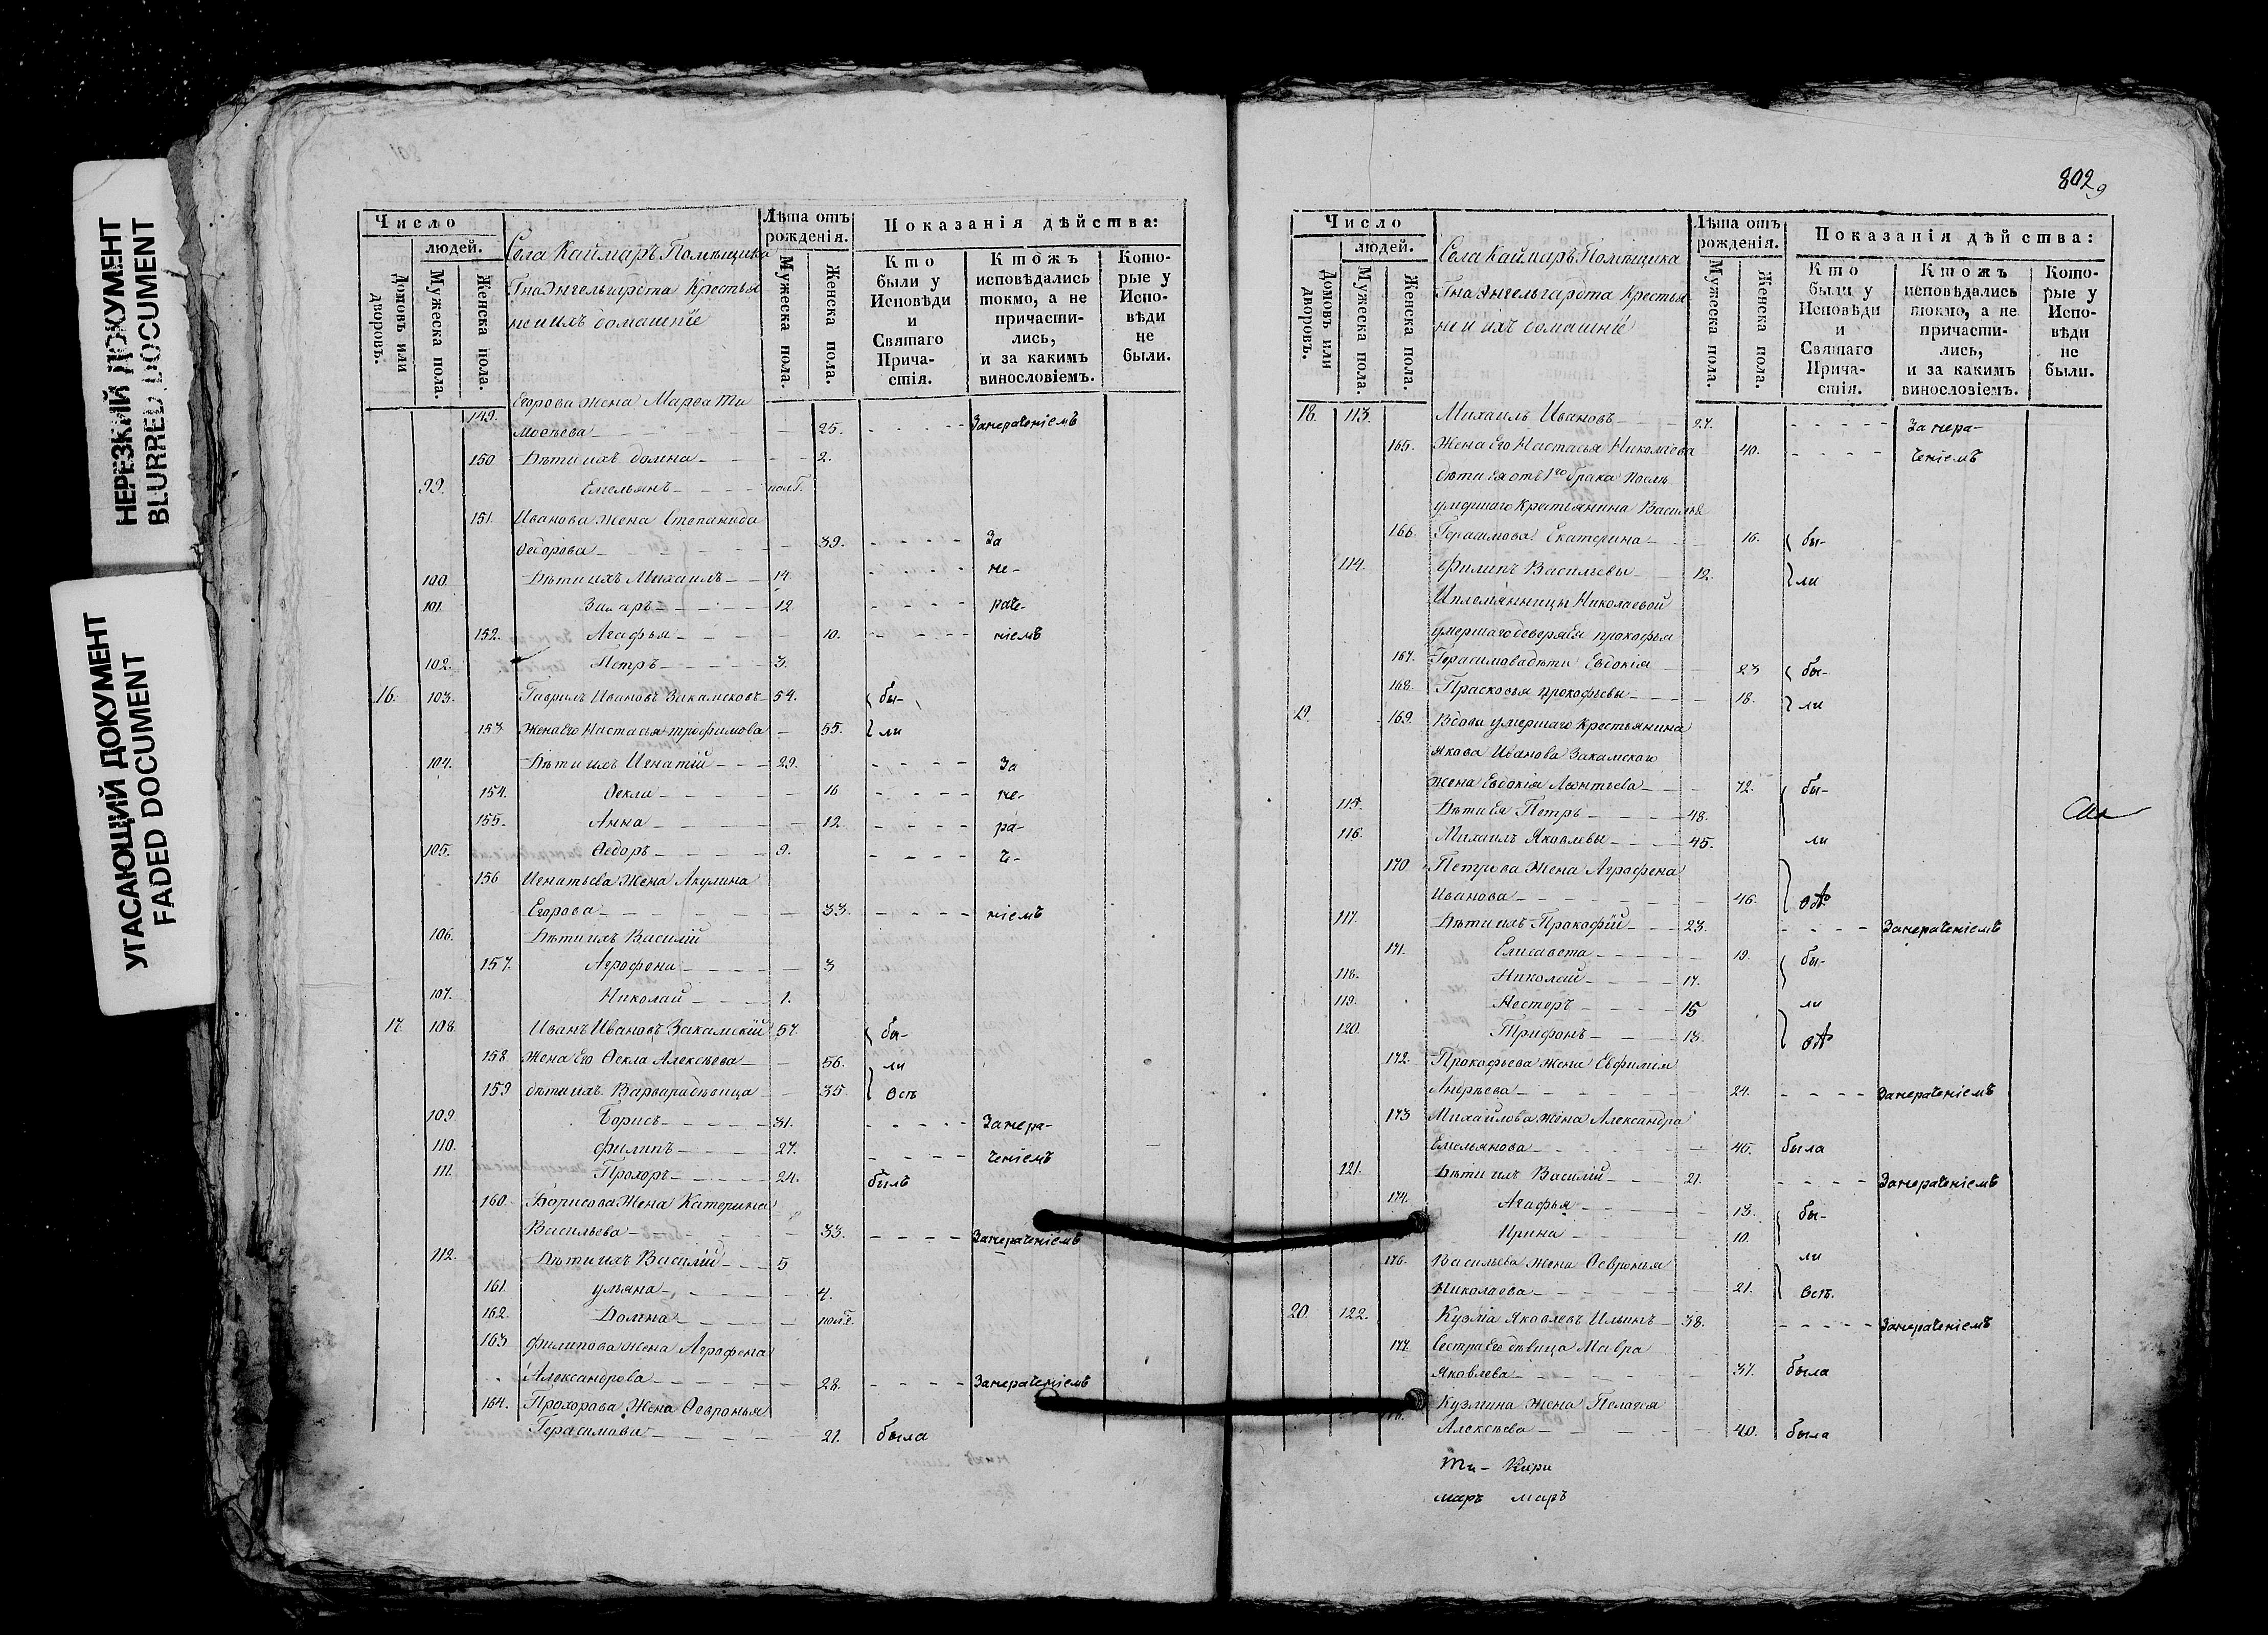 НЕРЕЗКИЙ ДОКУМЕНТ
BLURRED DOCUMENT
УГАСАЮЩИЙ ДОКУМЕНТ
FADED DOCUMENT
Число
людей.
Домовъ или дворовъ.
Мужеска пола.
Женска пола.
Села Каймаръ Помѣщика
Гна Энгельгарта Крестья
не и ихъ домашніе
Лѣта отъ рожденія.
Мужеска пола.
Женска пола.
Показанія дѣйства:
Кто были у Исповѣди и Святаго Причастія.
Ктожъ исповѣдались токмо, а не причастились, и за какимъ винословіемъ.
Которые у Исповѣди не были.
149. Егорова жена Марѳа Ти
мофѣева 25. Занераченіемъ
150 Дѣти ихъ Домна 2.
99. Емельянъ пол.г.
151. Иванова жена Степанида
Ѳедорова 39. За
100 Дѣти ихъ Михаилъ 14. не-
101. Захаръ 12 раче-
152. Агафья 10. ніемъ
102. Петръ 3.
16. 103. Гаврилъ Ивановъ Закамсковъ 54. бы-
153 Жена Его Настасья трофимова 55. ли
104. Дѣти ихъ Игнатій 29. За
154. Ѳекла 16 не-
155. Анна 12 ра-
105. Ѳедоръ 9. че-
156 Игнатьева жена Акулина
Егорова 33. ніемъ
106. Дѣти ихъ Василій
157. Агрофена 3
107. Николай 1.
17. 108. Иванъ Ивановъ Закамскій 57. бы-
158. Жена Его Ѳекла Алексѣева 56. ли
159 дѣти ихъ Варвара дѣвица 35. Всѣ
109. Борисъ 31. Занера-
110. Филипъ 27. ченіемъ
111. Прохоръ 24. былъ
160. Борисова Жена Катерина
Васильева 33. Занераченіемъ
112. Дѣти ихъ Василій 5
161. ульяна 4.
162. Домна пол.г.
163 Филипова жена Агрофена
Александрова 28. Занераченіемъ
164. Прохорова Жена Ѳевронья
Герасимова 21. была
802
9
Число
людей.
Домовъ или дворовъ.
Мужеска пола.
Женска пола.
Села Каймаръ Помѣщика
Гна Энгельгардта Крестья
не и ихъ домашніе
Лѣта отъ рожденія.
Мужеска пола.
Женска пола.
Показанія дѣйства:
Кто были у Исповѣди и Святаго Причастія.
Ктожъ исповѣдались токмо, а не причастились, и за какимъ винословіемъ.
Которые у Исповѣди не были.
18. 113. Михаилъ Ивановъ 27. Занера-
165. Жена Его Настасья Николаева 40. ченіемъ
дѣти Ея отъ 1го брака послѣ
умершаго Крестьянина Василья
166. Герасимова Екатерина 16. бы-
114. Филипъ Васильевы 12. ли
И племянницы Николаевой
умершаго деверя Ея прокофья
167. Герасимова дѣти Евдокія 23 бы-
168. Прасковья прокофьевы 18. ли
19. 169. Вдова умершаго Крестьянина
Якова Иванова Закамского
жена Евдокія Леонтьева 72. бы-
115. Дѣти Ея Петръ 48.
116. Михаилъ Яковлевы 45. ли
170 Петрова Жена Агрофена
Иванова 46.
117. Дѣти ихъ Прокофій 23. Занераченіемъ
171. Елисавета 19. бы-
118. Николай 17.
119. Несторъ 15 ли
120. Трифонъ 13.
172. Прокофьева жена Евфимія
Андрѣева 24. Занераченіемъ
173 Михайлова жена Александра
Емельянова 45. была
121. Дѣти ихъ Василій 21. Занераченіемъ
174. Агафья 13. бы-
Ирина 10.
176. Васильева жена Ѳевронья ли
Николаева 21. Всѣ.
20. 122. Кузма Яковлевъ Ильинъ 38. Занераченіемъ
177. Сестра Его дѣвица Мавра
Яковлева 37. была
Кузмина жена Пелагея
Алексѣева 40. была